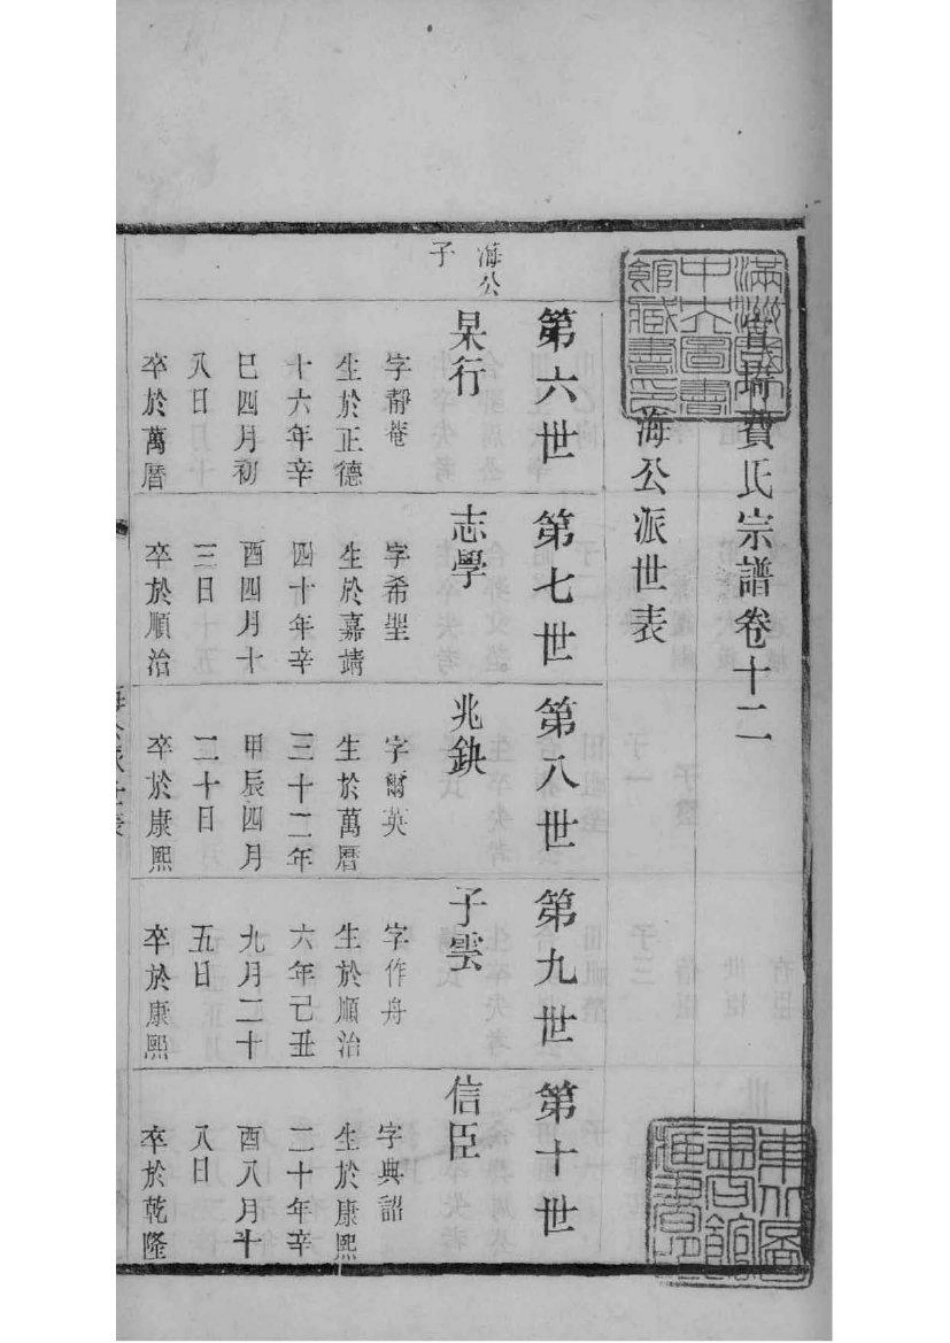 費氏宗譜卷十二
海公派世表
第六世
第七世
第八世
第九世
第十世
海公
子
杲行
字靜菴
生於正德
十六年辛
巳四月初
八日
卒於萬曆
志學
字希聖
生於嘉靖
四十年辛
酉四月十
三日
卒於順治
兆鉠
字爾英
生於萬曆
三十二年
甲辰四月
二十日
卒於康熙
子雲
字作舟
生於順治
六年己丑
九月二十
五日
卒於康熙
信臣
字典詔
生於康熙
二十年辛
酉八月十
八日
卒於乾隆